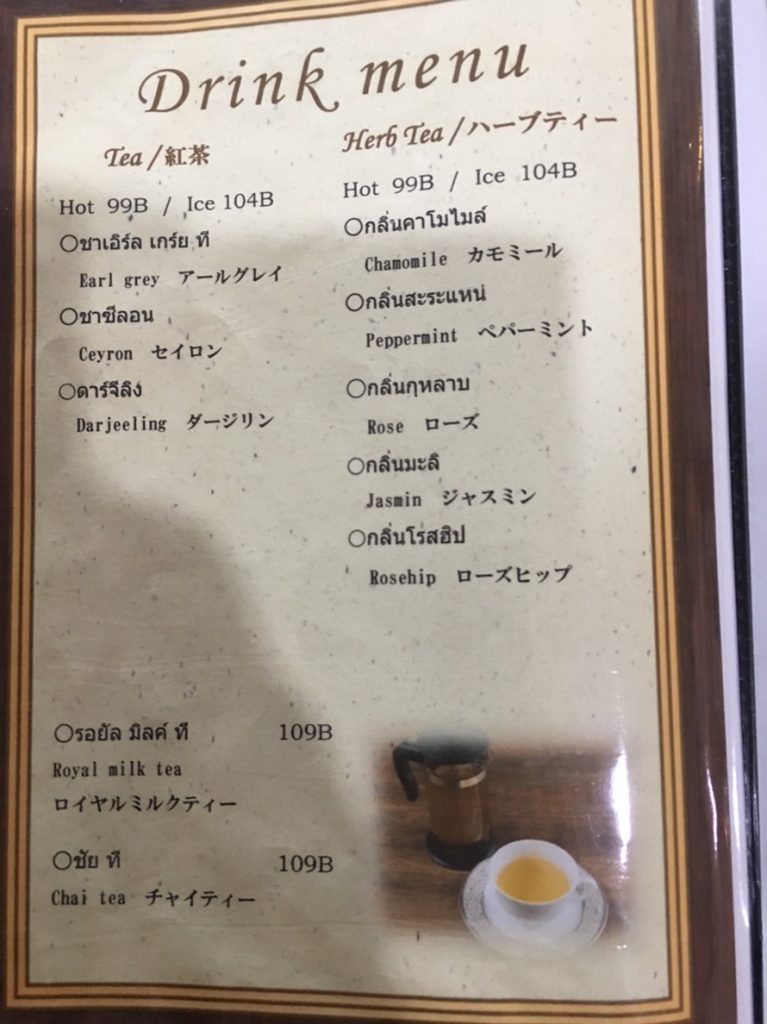 Drink menu
Tea / 紅茶
Hot 99B / Ice 104B
○ชาเอิร์ล เกร์ย ที
Earl grey アールグレイ
○ชาซีลอน
Ceyron セイロン
○ดาร์จีลิง
Darjeeling ダージリン
Herb Tea / ハーブティー
Hot 99B / Ice 104B
○กลิ่นคาโมไมล์
Chamomile カモミール
○กลิ่นสะระแหน่
Peppermint ペパーミント
○กลิ่นกุหลาบ
Rose ローズ
○กลิ่นมะลิ
Jasmin ジャスミン
○กลิ่นโรสฮิป
Rosehip ローズヒップ
○รอยัล มิลค์ ที 109B
Royal milk tea
ロイヤルミルクティー
○ชัย ที 109B
Chai tea チャイティー